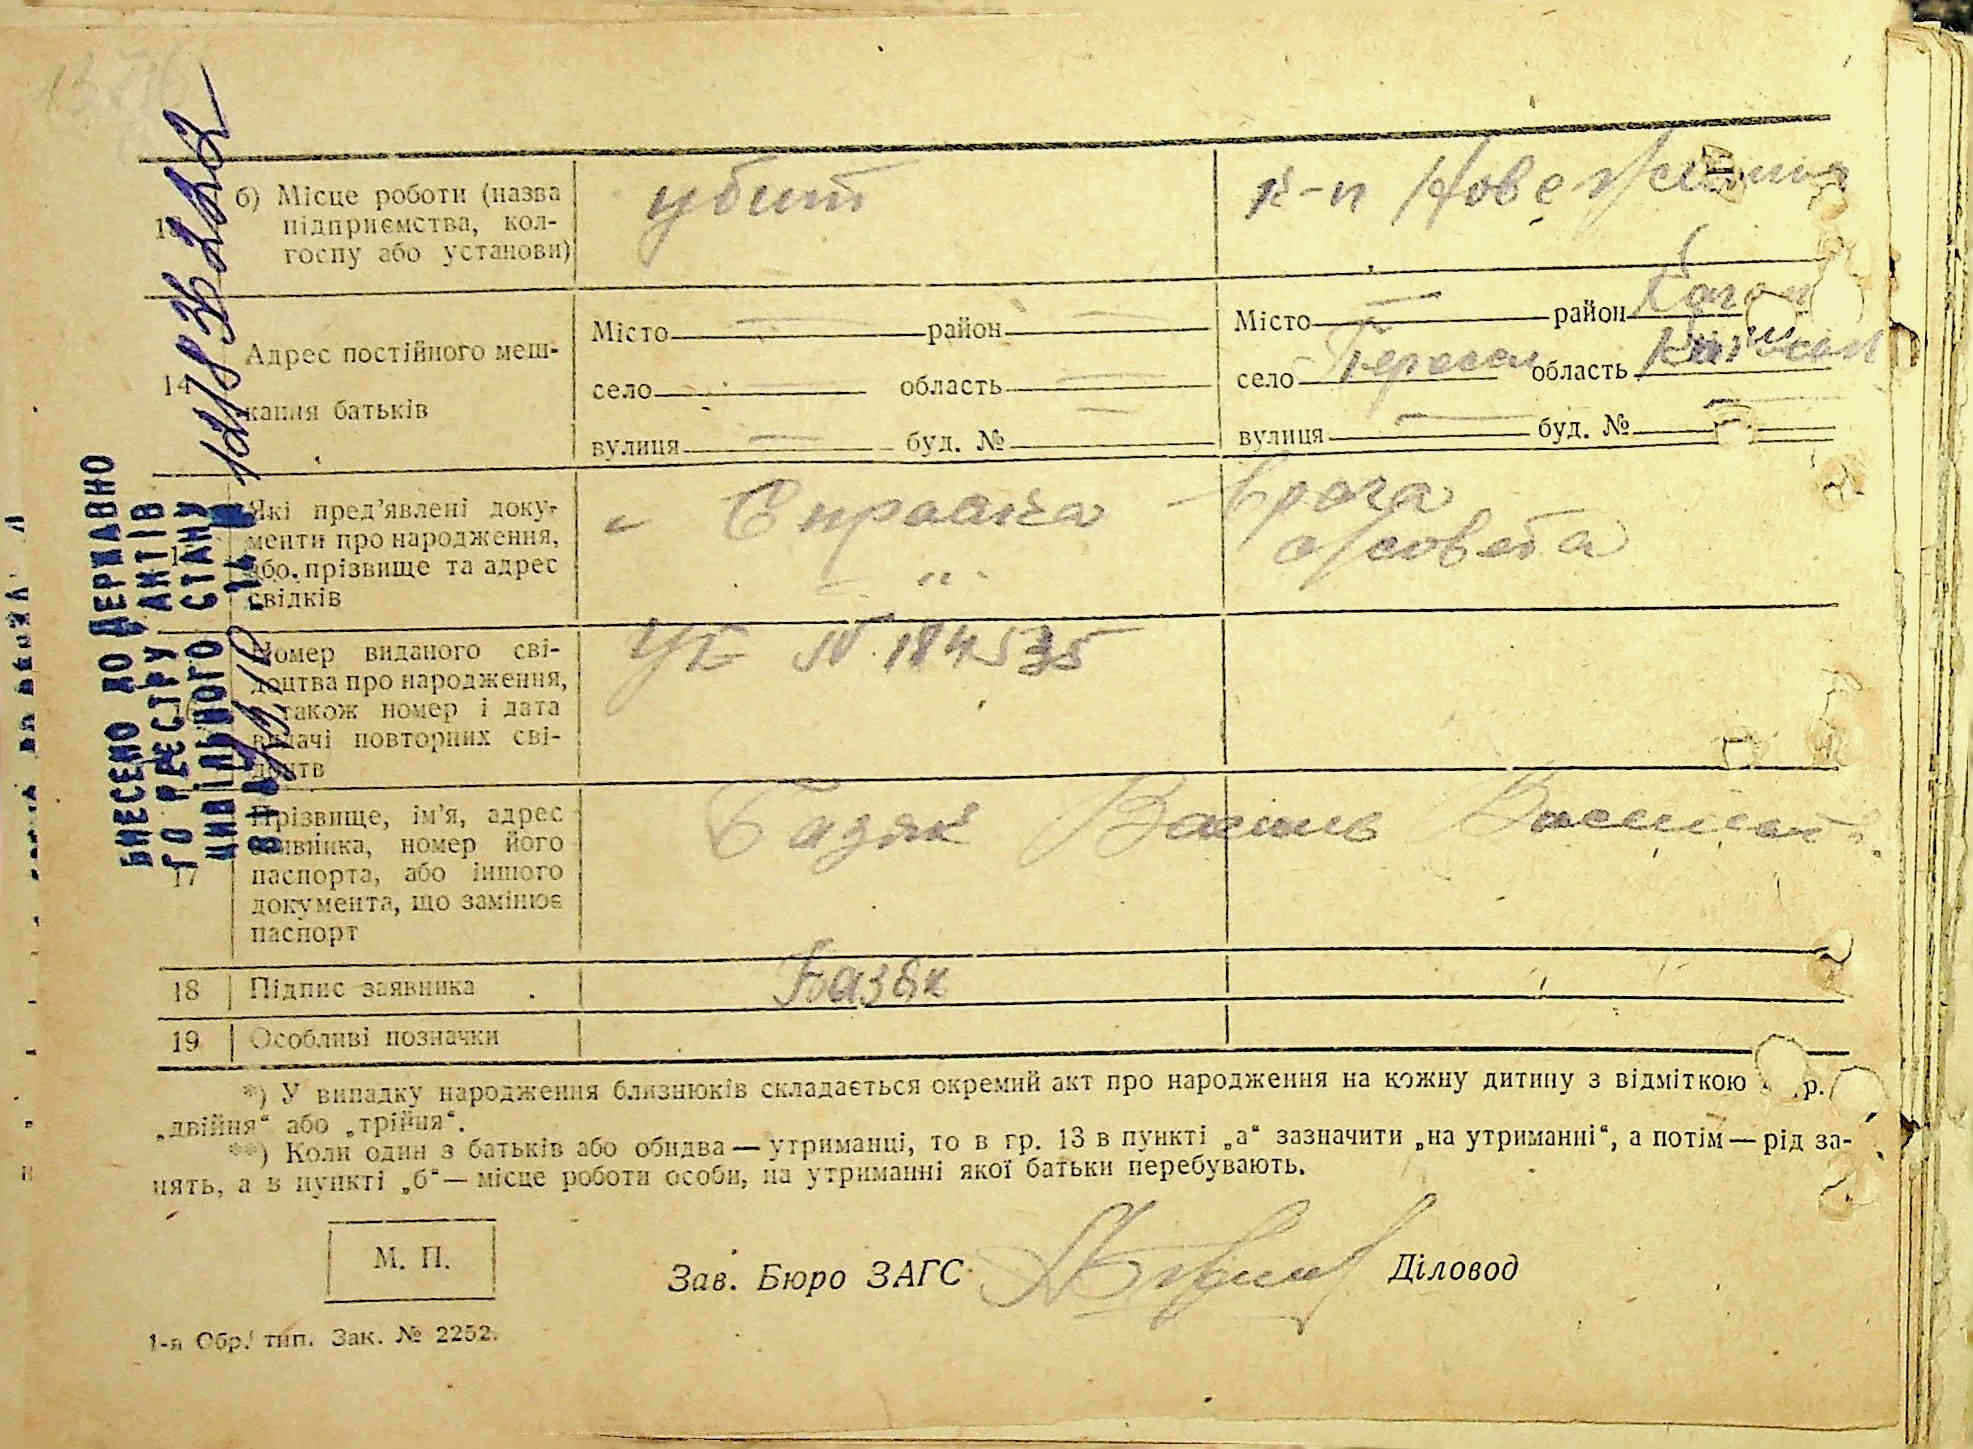 б) Місце роботи (назва
підприємства, кол-
госпу або установи)
убит
к-п Нове Життя
14
Адрес постійного меш-
кання батьків
Місто район
село область
вулиця буд. №
Місто район Каган
село Береган область Київськ
вулиця буд. №
Які пред'явлені доку-
менти про народження,
або прізвище та адрес
свідків
Справка врача
" с/совета
Номер виданого сві-
доцтва про народження,
також номер і дата
видачі повторних сві-
доцтв
УБ № 184535
17
Прізвище, ім'я, адрес
заявника, номер його
паспорта, або іншого
документа, що замінює
паспорт
Базяк Василь
18
Підпис заявника
Базяк
19
Особливі позначки
*) У випадку народження близнюків складається окремий акт про народження на кожну дитину з відміткою гр.
„двійня“ або „трійня“.
**) Коли один з батьків або обидва — утриманці, то в гр. 13 в пункті „а“ зазначити „на утриманні“, а потім — рід за-
нять, а в пункті „б“ — місце роботи особи, на утриманні якої батьки перебувають.
М. П.
Зав. Бюро ЗАГС
Діловод
1-а Обр. тип. Зак. № 2252.
ВНЕСЕНО ДО ДЕРЖАВНО
ГО РЕЄСТРУ АКТІВ
ЦИВІЛЬНОГО СТАНУ